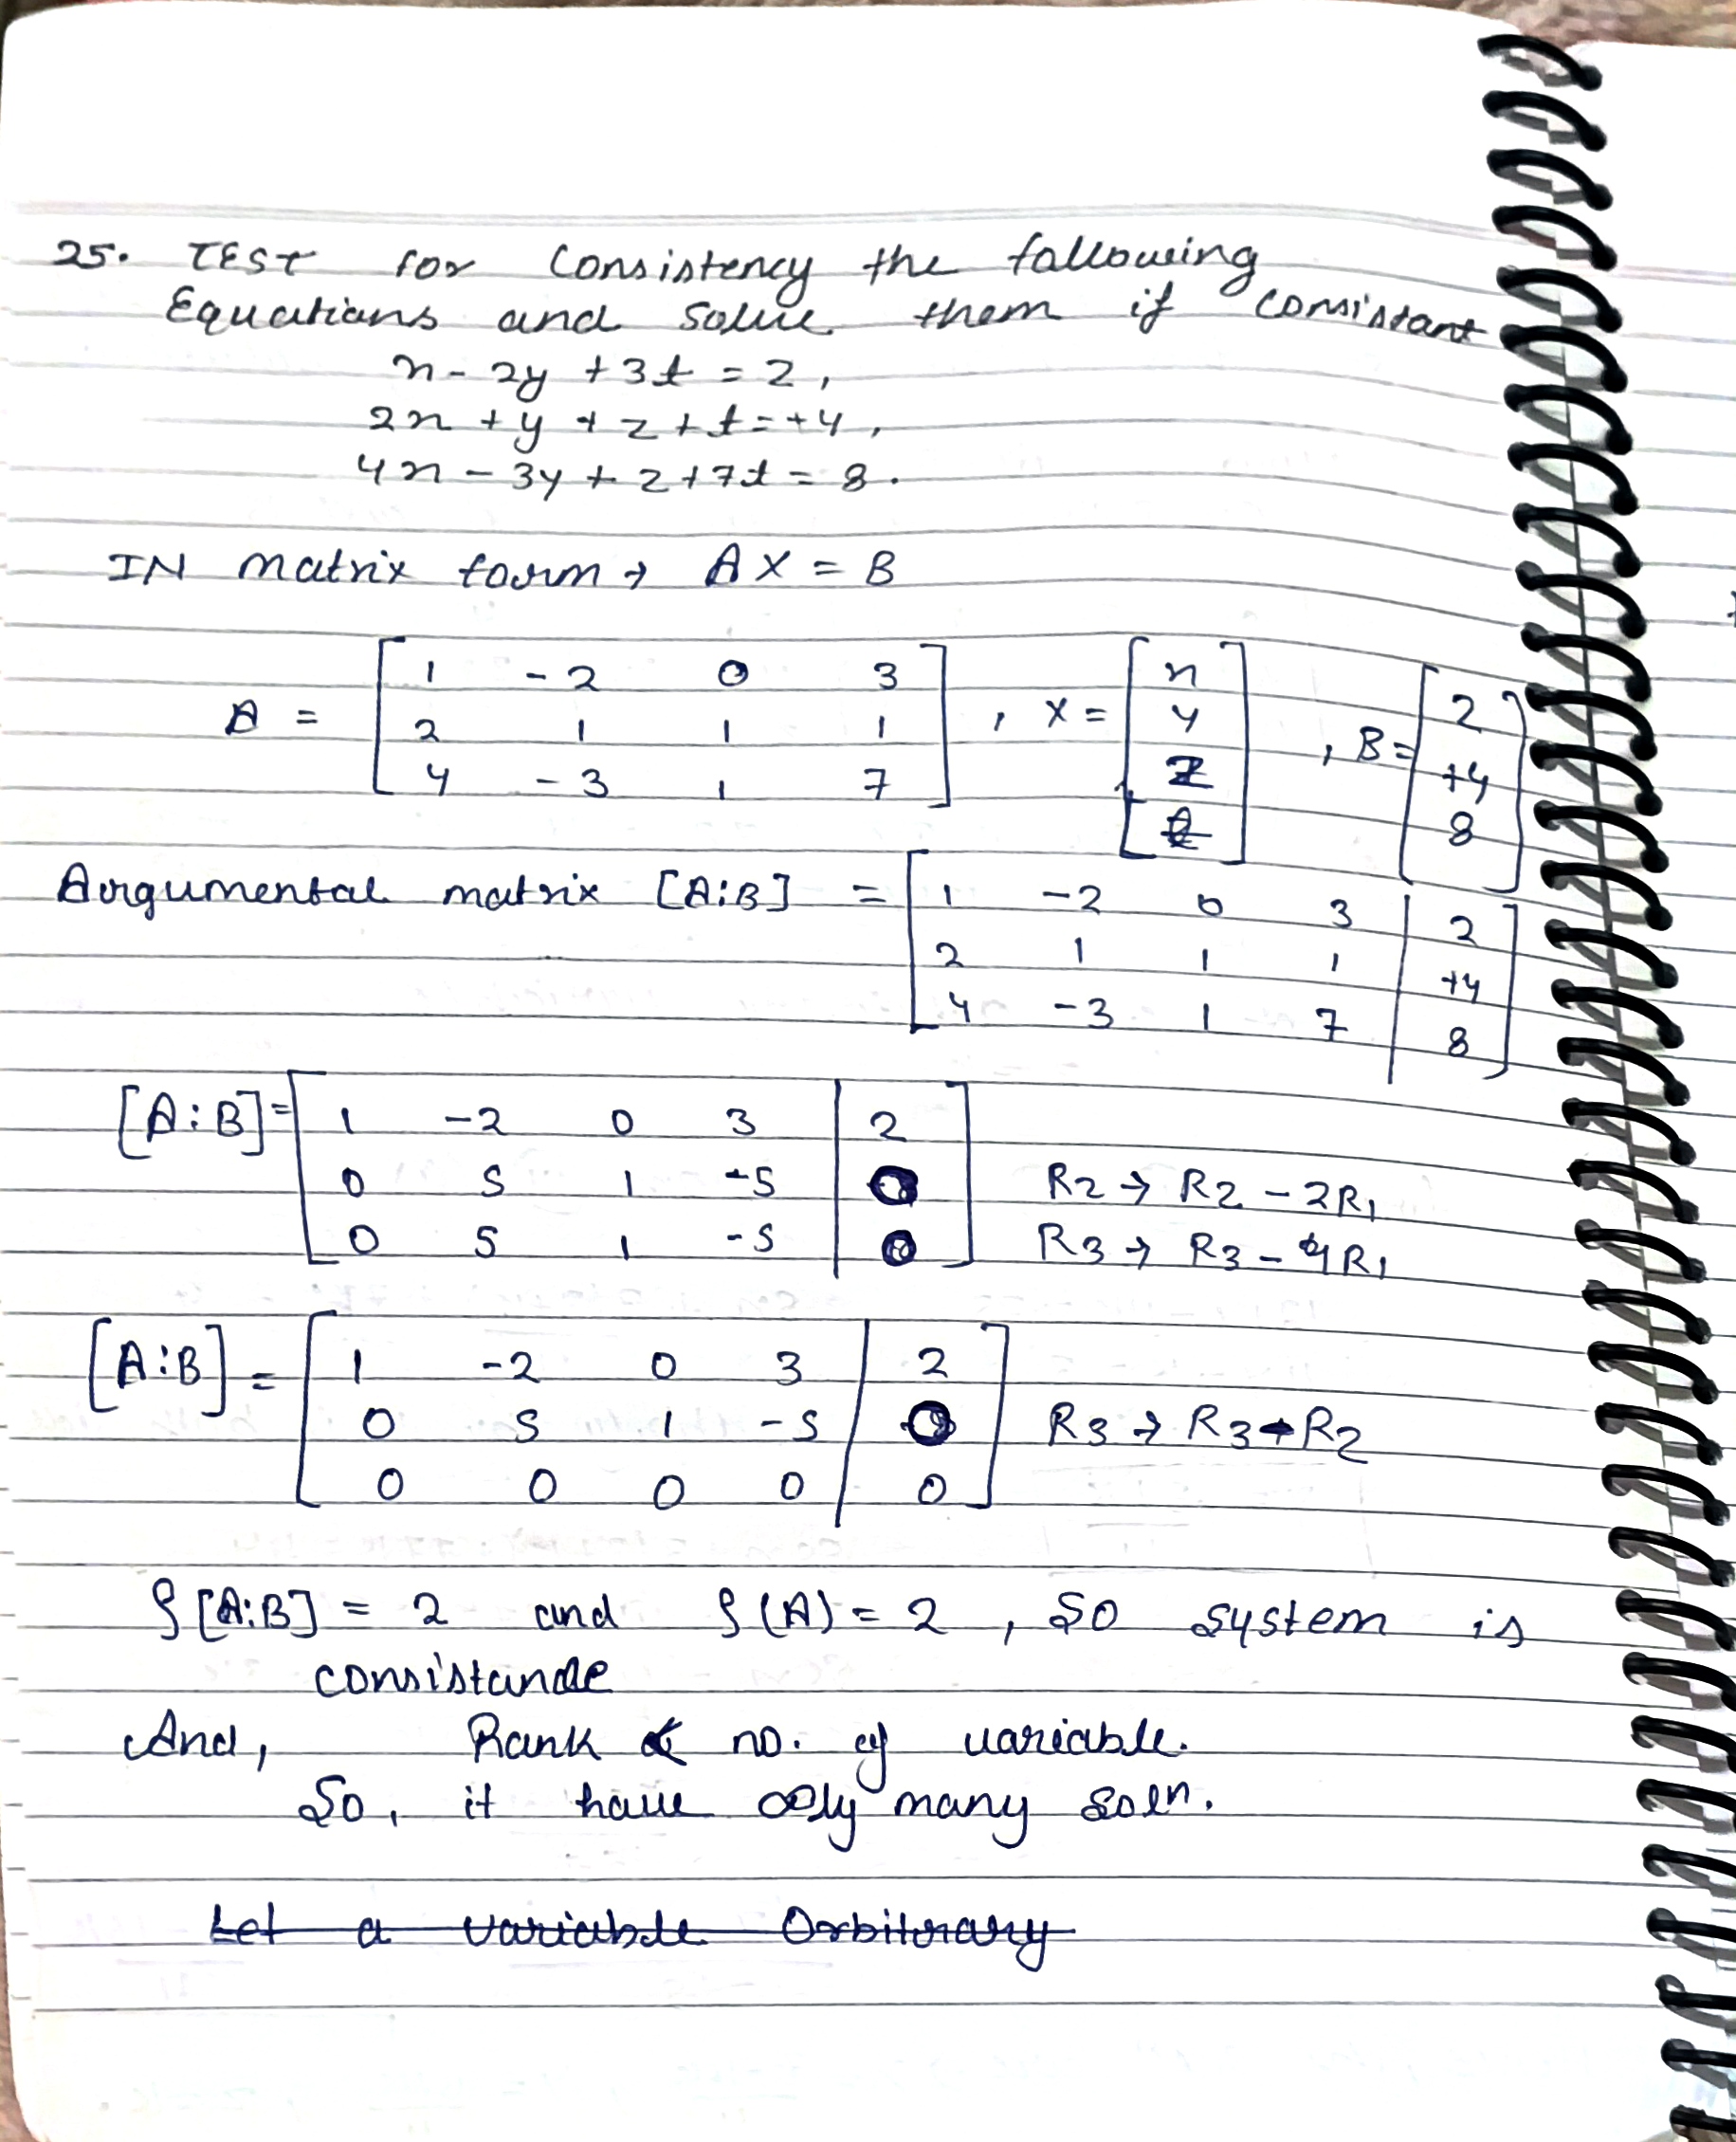 25. TEST for Consistency the following
Equations and Solve them if consistant
x - 2y + 3t = 2,
2x + y + z + t = +4,
4x - 3y + z + 7t = 8.
IN matrix form → AX = B
A = [ 1 -2 0 3 ] , X = [ x ] , B = [ 2 ]
[ 2 1 1 1 ] [ y ] [ +4 ]
[ 4 -3 1 7 ] [ z ] [ 8 ]
[ t ]
Augumental matrix [A:B] = [ 1 -2 0 3 | 2 ]
[ 2 1 1 1 | +4 ]
[ 4 -3 1 7 | 8 ]
[A:B] = [ 1 -2 0 3 | 2 ]
[ 0 5 1 -5 | 0 ] R2 → R2 - 2R1
[ 0 5 1 -5 | 0 ] R3 → R3 - 4R1
[A:B] = [ 1 -2 0 3 | 2 ]
[ 0 5 1 -5 | 0 ] R3 → R3 - R2
[ 0 0 0 0 | 0 ]
ρ[A:B] = 2 and ρ(A) = 2 , So system is
consistande
And, Rank < no. of variable.
So, it have ∞ly many soln.
Let a variable Orbitrary